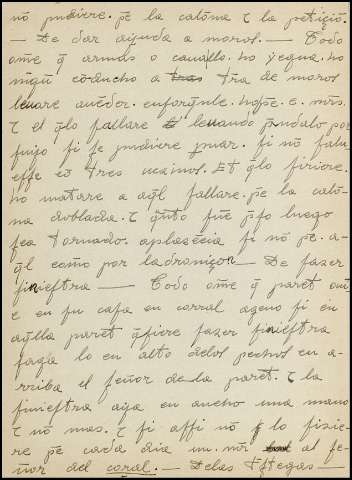 nō pudiere. pẽ la calōna τ la petiçiō.
— De dar aiuda a moros. — Todo
om̃e q̄ armas o cauallo. ho yegua. ho
nīgū cōducho a tras tr̃a de moros
leuare
τ el q̄lo fallare leuando p̄ndalo por
fuijo si se pudiere si nō
esse cō tres uezinos. Et q̄lo firiere.
ho matare a aq̄l fallare. pẽ la calō-
na doblada. τ q̄nto fue luego
sea tornado. a plazēcia si nō pẽ. a-
q̄l como por ladroniçon — De fazer
finiestra — Todo om̃e q̄ paret oui
e en su casa en corral ageno si en
aq̄lla paret q̄siere fazer finiestra
faga lo en alto delos pechos en a-
rriba el señor de la paret. τ la
finiestra aya en ancho una mano
τ nō mas. τ si assi nō lo fizie-
re pẽ cada dia un. mr̄i al se-
ñor del coral. — Delas